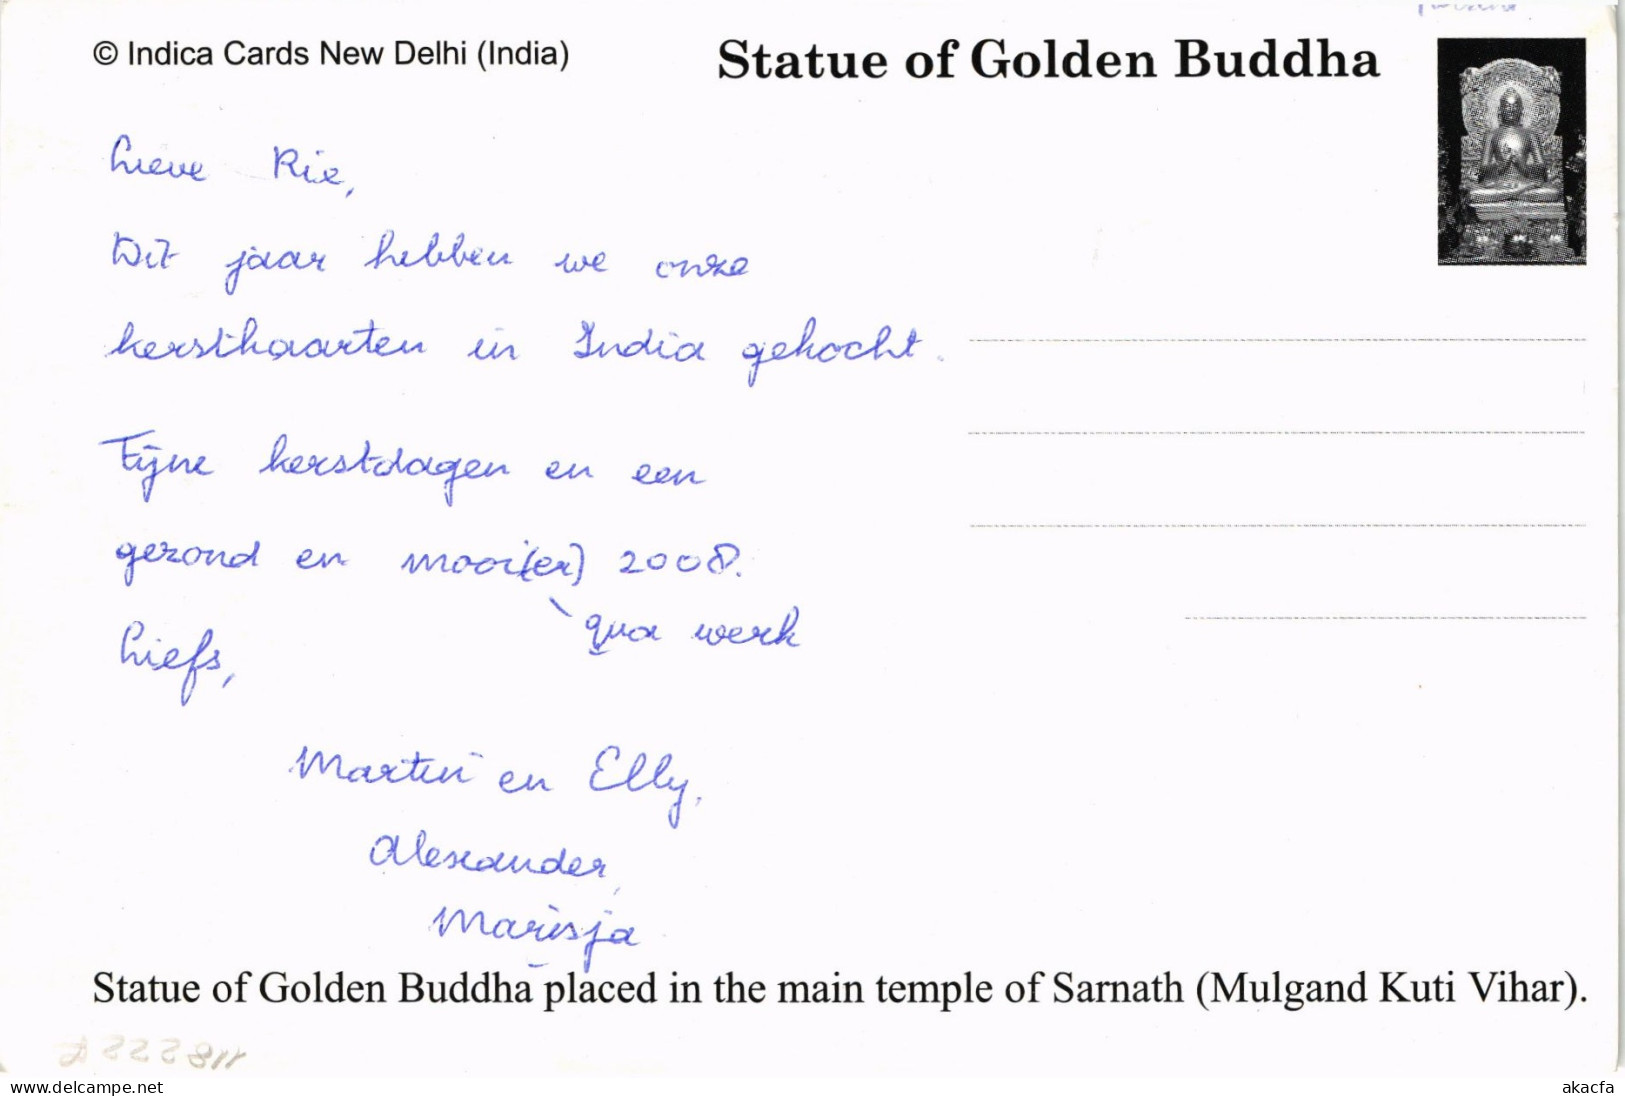 © Indica Cards New Delhi (India)
Statue of Golden Buddha
Lieve Rie,
Dit jaar hebben we onze
kerstkaarten in India gekocht.
Fijne kerstdagen en een
gezond en mooi(er) 2008.
qua werk
Liefs,
Martin en Elly,
Alexander,
Marisja
Statue of Golden Buddha placed in the main temple of Sarnath (Mulgand Kuti Vihar).
www.delcampe.net
akacfa